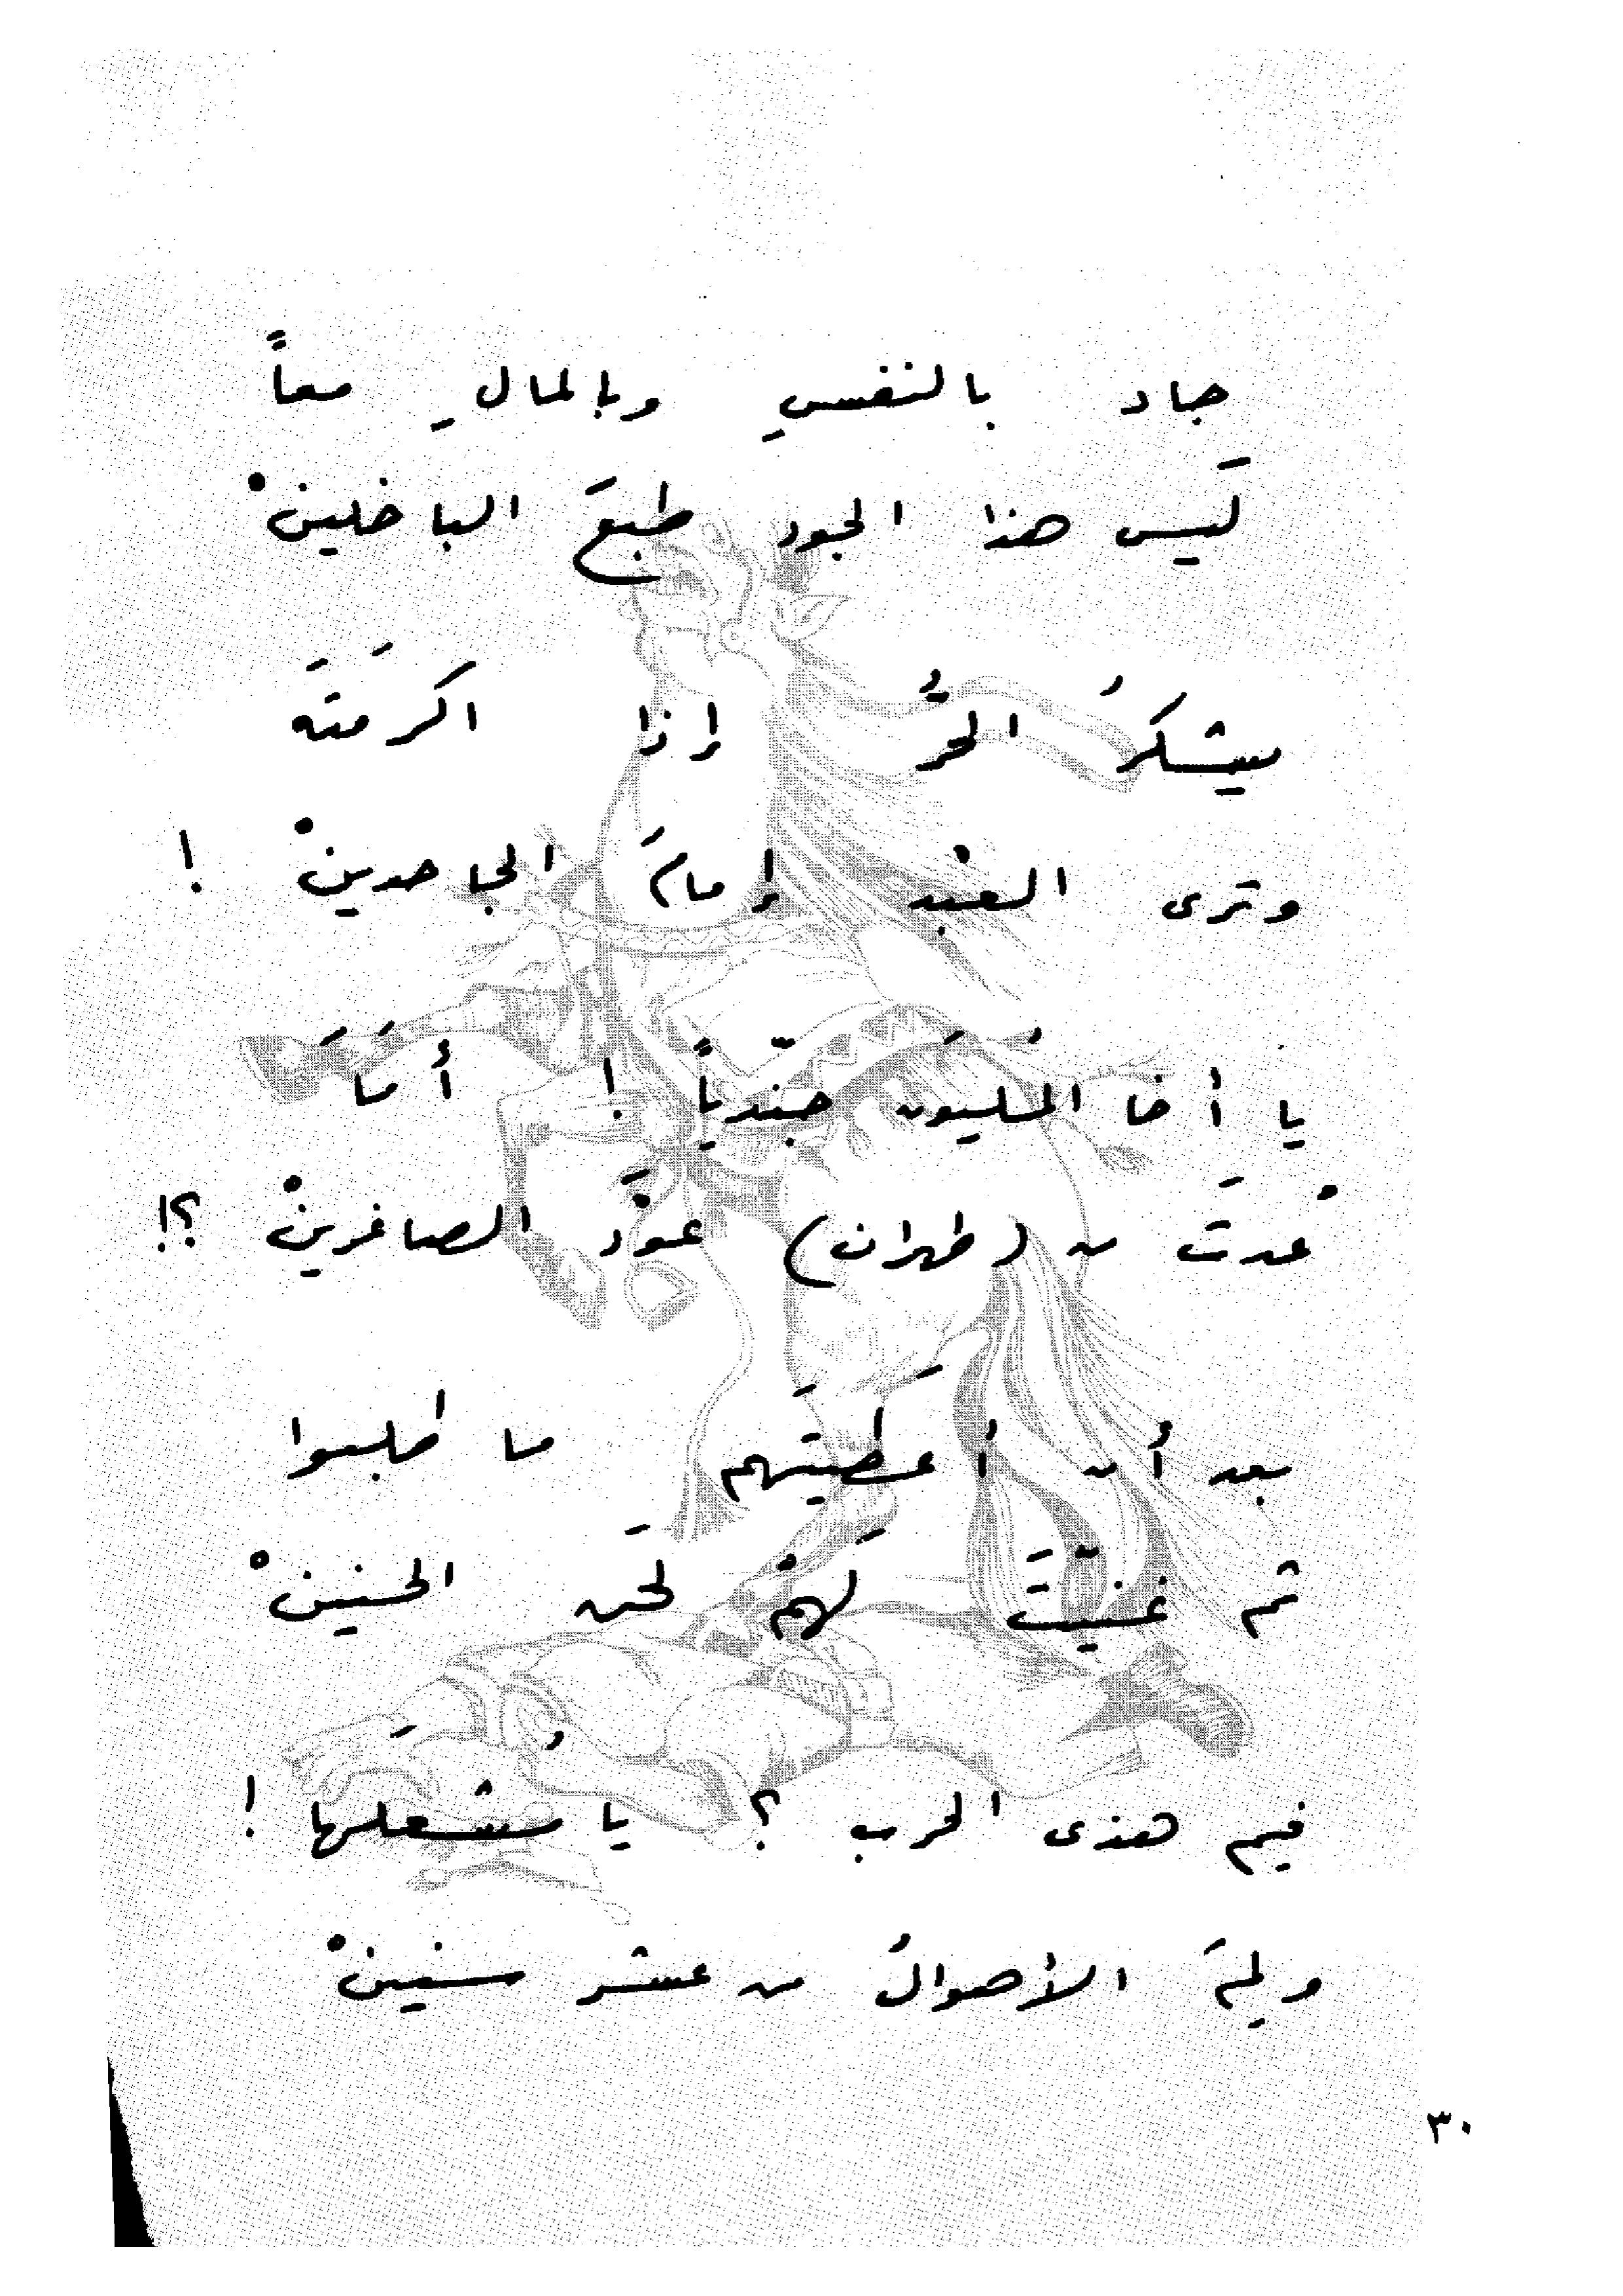 جاد بالنفسِ وبالمالِ معاً
لَيس هذا الجود طبعَ الباخلينْ
يشكرُ الحرُّ إذا اكرمَتَه
وترى العبْد إمامَ الجاحدينْ !
يا أخا المُليَون جنّدياً ! أمَاَ
عدْتَ من (طهران) عوْدَ الصاغرينْ ؟!
بعد أن أعطَيتَهم ما طلبوا
ثم غنيّتَ لَهمْ لحَن الحنينْ
فيم هذى الحرب ؟ يا مُشعلَها !
ولِمَ الأهوالُ من عشر سنينْ
٣٠